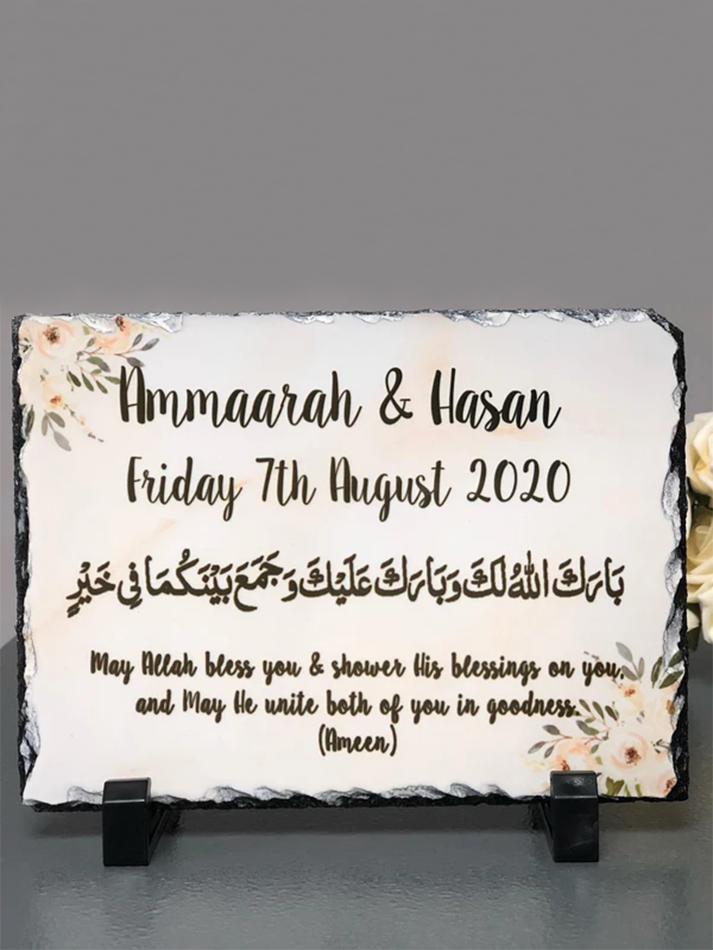 Ammaarah & Hasan
Friday 7th August 2020
بَارَكَ اللهُ لَكَ وَبَارَكَ عَلَيْكَ وَجَمَعَ بَيْنَكُمَا فِي خَيْرٍ
May Allah bless you & shower His blessings on you,
and May He unite both of you in goodness.
(Ameen)